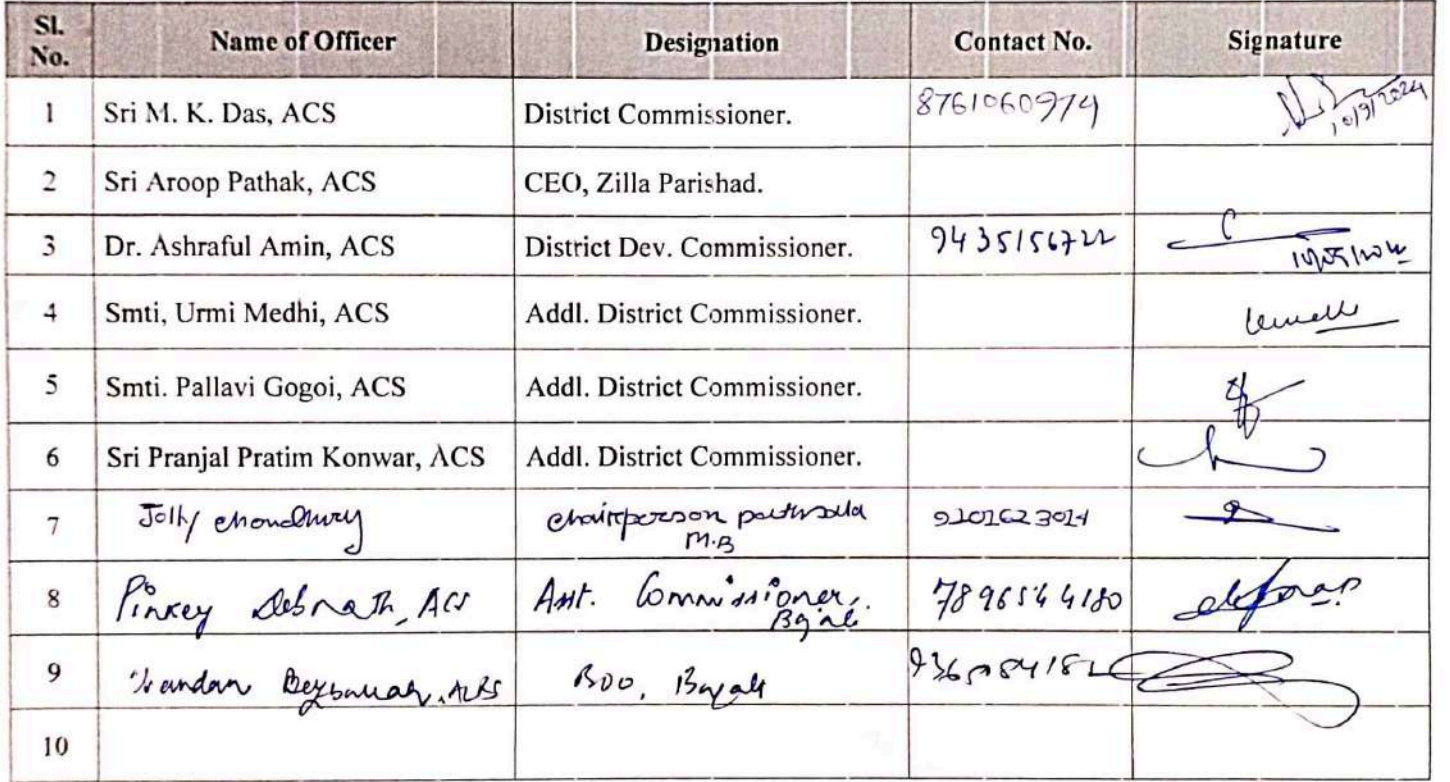 Sl. No. Name of Officer Designation Contact No. Signature
1 Sri M. K. Das, ACS District Commissioner. 8761060974 10/9/2024
2 Sri Aroop Pathak, ACS CEO, Zilla Parishad.
3 Dr. Ashraful Amin, ACS District Dev. Commissioner. 9435156722
4 Smti, Urmi Medhi, ACS Addl. District Commissioner.
5 Smti. Pallavi Gogoi, ACS Addl. District Commissioner.
6 Sri Pranjal Pratim Konwar, ACS Addl. District Commissioner.
7 Jolly Choudhury Chairperson M.B
8 Pinkey Debnath, ACS Asst. Commissioner, Bajali 7896544180
9 BDO, Bajali
10